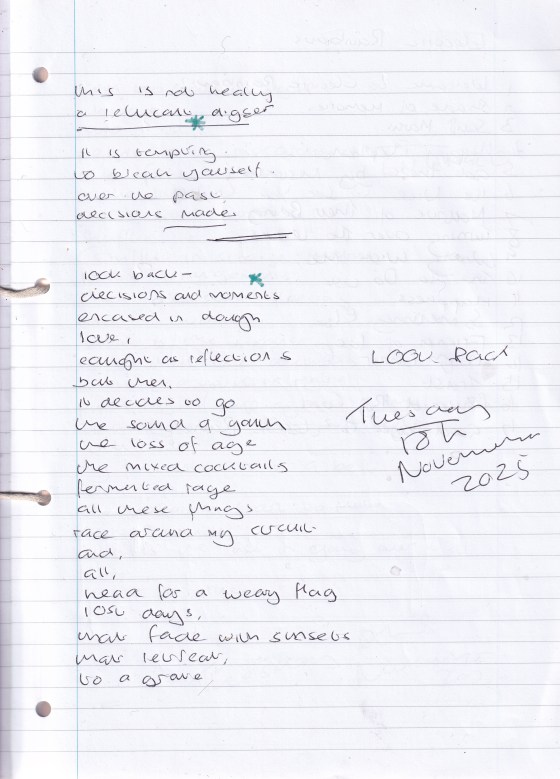 this is not really
a reluctant digger
it is tempting.
to break yourself.
over the past,
decisions made.
look back -
decisions and moments
encased in dough
love,
caught as reflections
but then,
it decides to go
the sound of youth
the loss of age
the mixed cocktails
fermented rage
all these things
race around my circuit.
and,
all,
head for a weary flag
lost days,
that fade with sunsets
that retreat,
to a grave
LOOK BACK
Tuesday
18th
November
2025